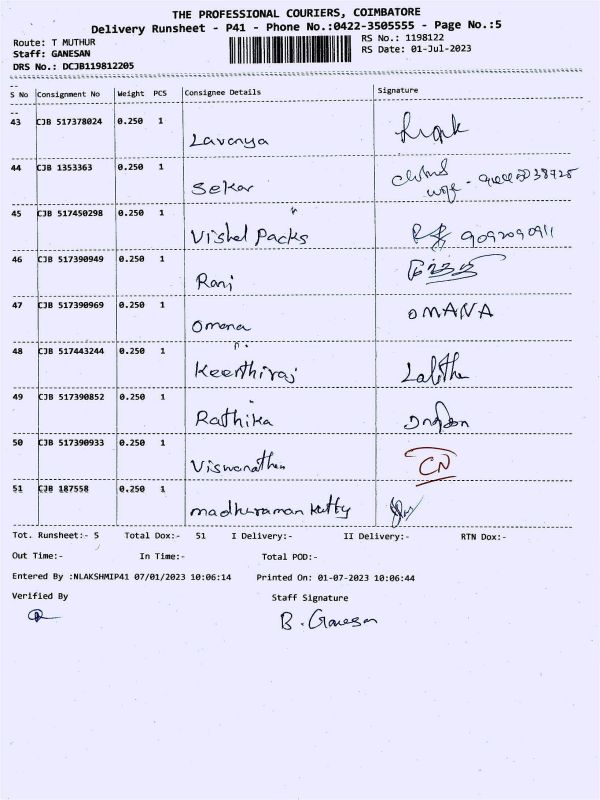 THE PROFESSIONAL COURIERS, COIMBATORE
Delivery Runsheet - P41 - Phone No.:0422-3505555 - Page No.:5
Route: T MUTHUR
RS No.: 1198122
Staff: GANESAN
RS Date: 01-Jul-2023
DRS No.: DCJB119812205
S No Consignment No Weight PCS Consignee Details Signature
43 CJB 517378024 0.250 1 Lavanya
44 CJB 1353363 0.250 1 Sekar
wife -
45 CJB 517450298 0.250 1 Vishal Packs 9092090911
46 CJB 517390949 0.250 1 Rani
47 CJB 517390969 0.250 1 Omana OMANA
48 CJB 517443244 0.250 1 Keerthiraj Lalitha
49 CJB 517390852 0.250 1 Rathika
50 CJB 517390933 0.250 1 Viswanathan CN
51 CJB 187558 0.250 1 madhuraman kutty
Tot. Runsheet:- 5 Total Dox:- 51 I Delivery:- II Delivery:- RTN Dox:-
Out Time:- In Time:- Total POD:-
Entered By :NLAKSHMIP41 07/01/2023 10:06:14 Printed On: 01-07-2023 10:06:44
Verified By Staff Signature
B. Ganesan